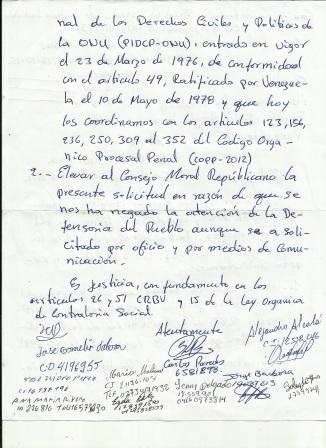 nal de los Derechos Civiles y Políticos de
la ONU (PIDCP-ONU), entrado en vigor
el 23 de Marzo de 1976, de conformidad
con el articulo 49, Ratificado por Venezue
la el 10 de Mayo de 1978 y que hoy
los coordinamos con los articulos 123, 156,
236, 250, 309 al 352 del Codigo Orga-
nico Procesal Penal (COPP-2012)
2.- Elevar al Consejo Moral Républicano la
presente solicitud en razón de que se
nos ha negado la atención de la De-
fensoria del Pueblo aunque se a soli-
citado por oficio y por medios de Comu-
nicación.
Es Justicia, con fundamento en los
articulos 26 y 51 CRBV y 15 de la Ley Organica
de Contraloría Social.
Atentamente
Alejandro Alcalá
Jose
CO 4196955
Carlos Paredes
6581898.
Mario
Jenny Delgado
Jorge Barbosa
ANA MARIA